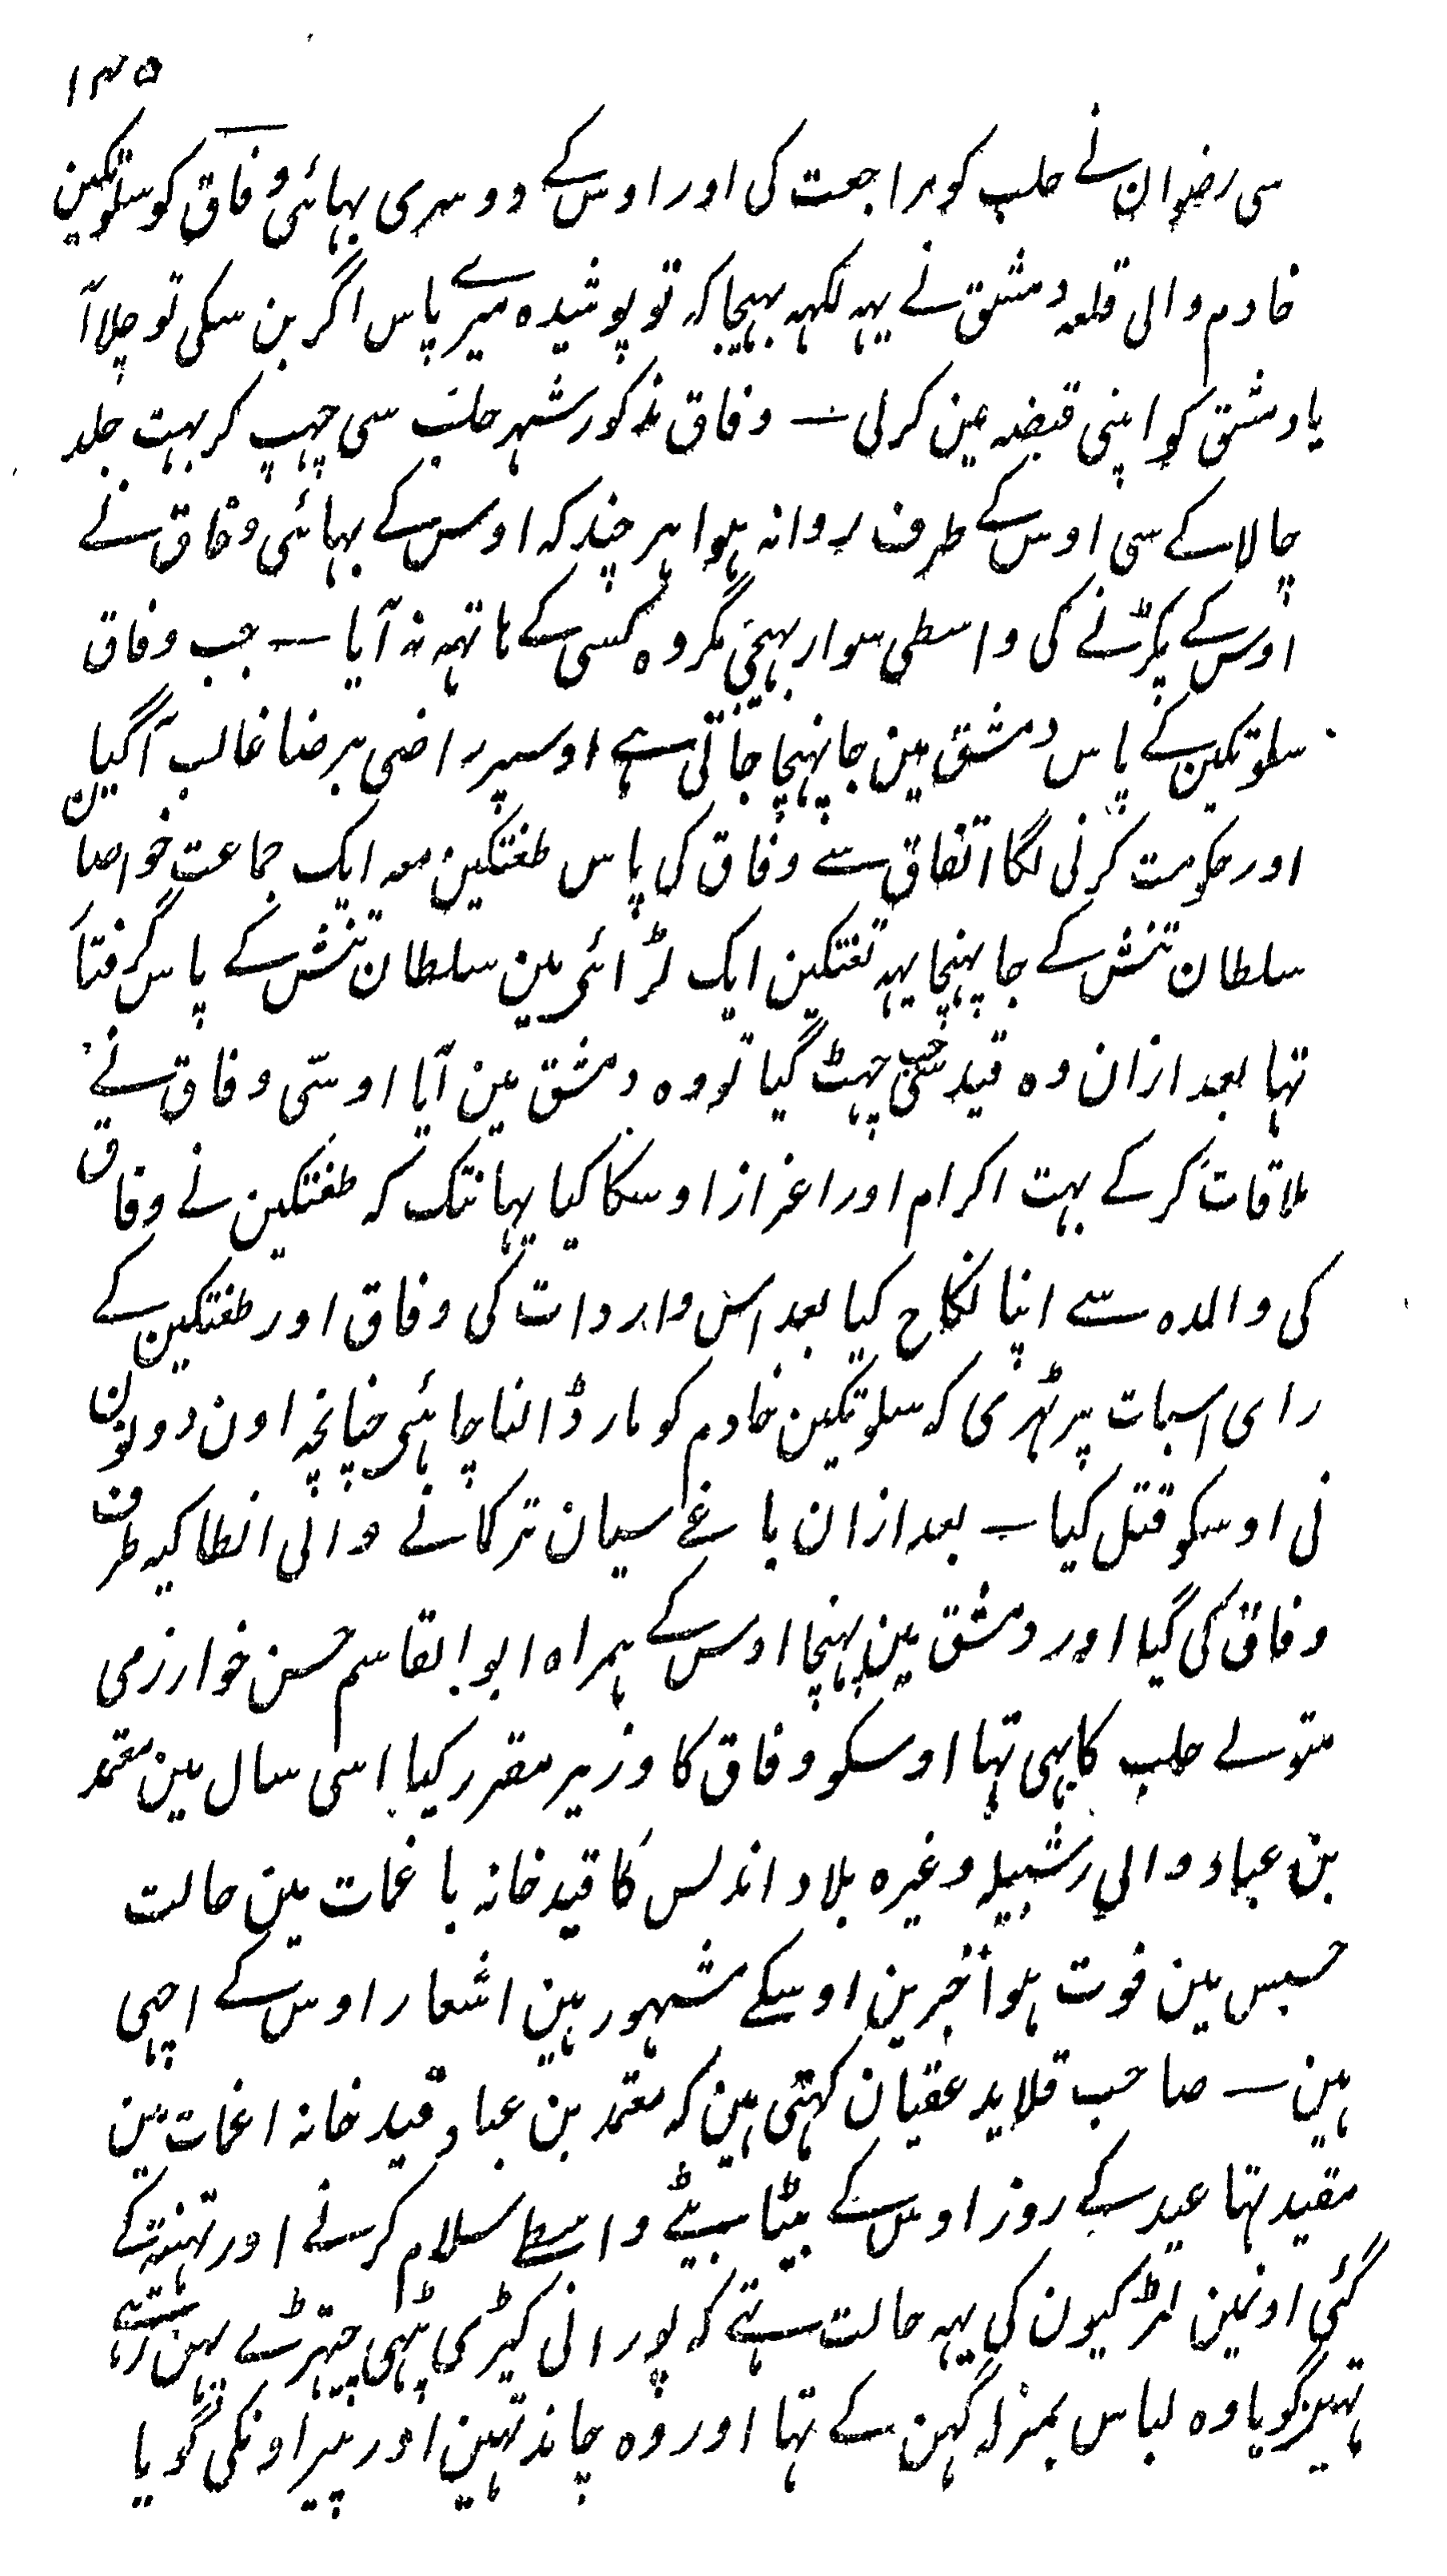 ۱۳۵
سی رضوان نے حلب کو مراجعت کی اور اوس کے دوسری بہائی وفاق کو سلوتکین
خادم والی قلعہ دمشق نے یہہ لکہہ بہیجا کہ تو پوشیدہ میرے پاس اگر بن سکی تو چلا آ
یا دمشق کو اپنی قبضہ مین کرلی ــ وفاق مذکور شہر حلب سی چہپ کر بہت جلد
چالاکے سی اوس کے طرف روانہ ہوا ہر چند کہ اوس کے بہائی وفاق نے
اوس کے پکڑنے کی واسطی سوار بہیجی مگر وہ کسی کے ہاتہہ نہ آیا ــ جب وفاق
سلوتکین کے پاس دمشق مین جا پہنچا جاتی ہے اوسپر راضی برضا غالب آگیا
اور حکومت کرنی لگا اتفاق سے وفاق کی پاس طغتکین معہ ایک جماعت خواصان
سلطان تتش کے جا پہنچا یہہ تغتکین ایک لڑائی مین سلطان تتش کے پاس گرفتار
تہا بعد ازان وہ قید سی جب چہٹ گیا تو وہ دمشق مین آیا اوسّی وفاق نے
ملاقات کرکے بہت اکرام اور اعزاز اوسکا کیا یہانتک کہ طغتکین نے وفاق
کی والدہ سے اپنا نکاح کیا بعد اس واردات کی وفاق اور طغتکین کے
رای اسبات پر ٹہری کہ سلوتکین خادم کو مار ڈالنا چاہئی چنانچہ اون دونون
نی اوسکو قتل کیا ــ بعد ازان باغے سیان ترکمانے والی انطاکیہ طرف
وفاق کی گیا اور دمشق مین پہنچا اوس کے ہمراہ ابو القاسم حسن خوارزمی
متولے حلب کا بہی تہا اوسکو وفاق کا وزیر مقرر کیا اسی سال مین معتمد
بن عباد والی رشبیلہ وغیرہ بلاد اندلس کا قید خانہ باغمات مین حالت
حسبس مین فوت ہوا خبرین اوسکے مشہور ہین اشعار اوس کے اچہی
ہین ــ صاحب قلاید عقیان کہتی ہین کہ معتمد بن عباد قید خانہ اغمات مین
مقید تہا عید کے روز اوس کے بیٹا بیٹے واسطے سلام کرنے اور تہنیت کے
گئی اونمین لڑکیون کی یہہ حالت تہے کہ پورانی کپڑی پہٹی چتہڑے پہن رہے
تہین گویا وہ لباس بمنزلہ گہن کے تہا اور وہ چاند تہین اور پیر اونکی گویا